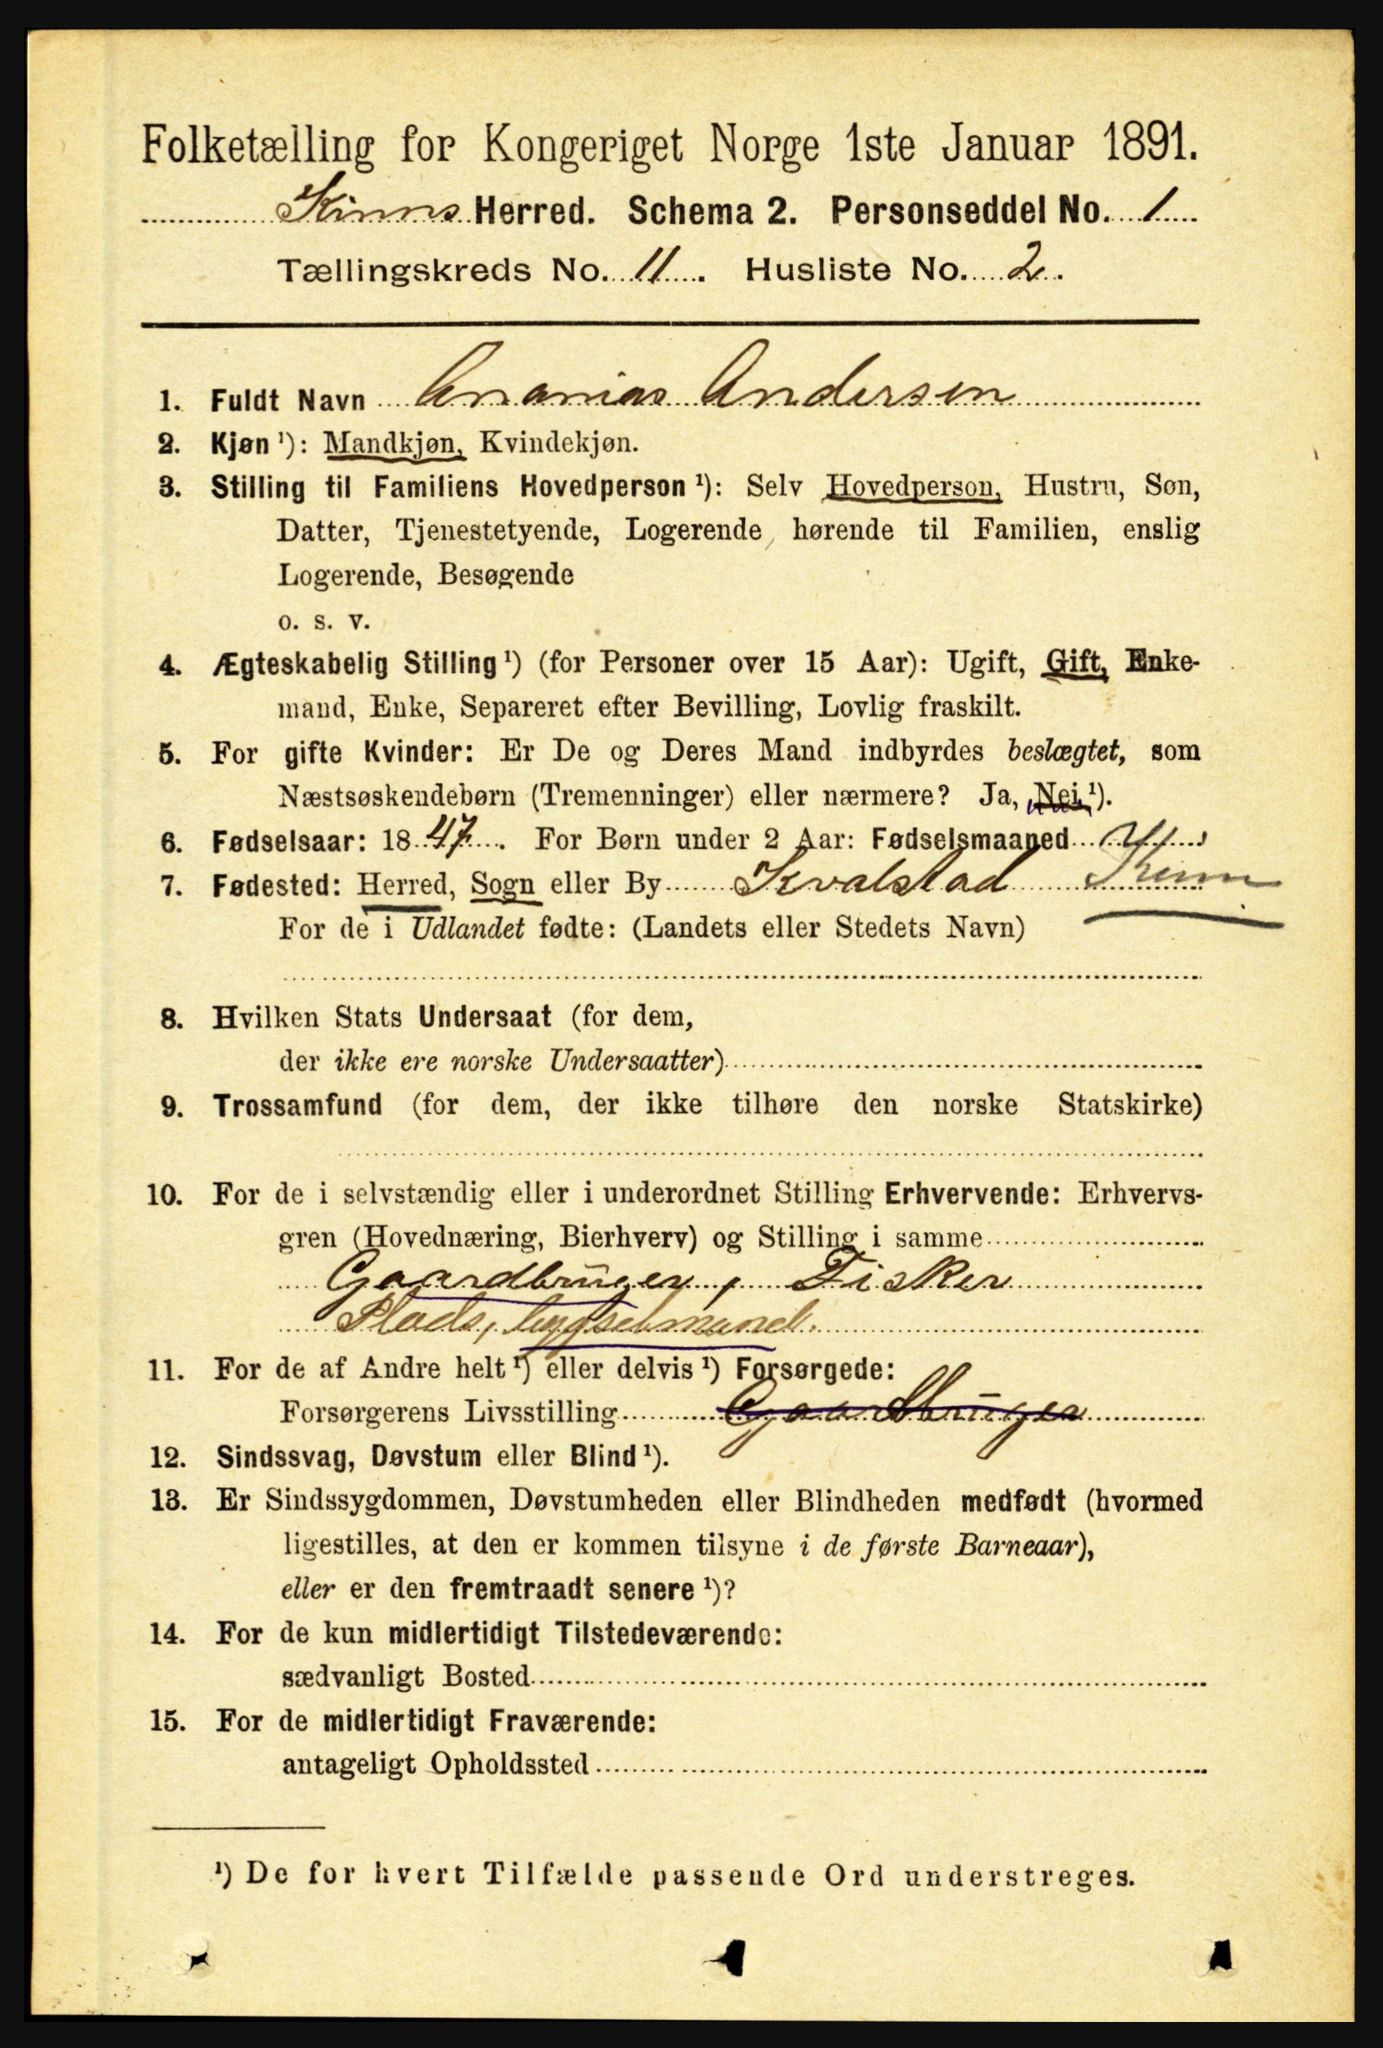 Folketælling for Kongeriget Norge 1ste Januar 1891.
Kinns Herred. Schema 2. Personseddel No. 1
Tællingskreds No. 11. Husliste No. 2.
1. Fuldt Navn Ananias Andersen
2. Kjøn ¹): Mandkjøn, Kvindekjøn.
3. Stilling til Familiens Hovedperson ¹): Selv Hovedperson, Hustru, Søn,
Datter, Tjenestetyende, Logerende hørende til Familien, enslig
Logerende, Besøgende
o. s. v.
4. Ægteskabelig Stilling ¹) (for Personer over 15 Aar): Ugift, Gift, Enke-
mand, Enke, Separeret efter Bevilling, Lovlig fraskilt.
5. For gifte Kvinder: Er De og Deres Mand indbyrdes beslægtet, som
Næstsøskendebørn (Tremenninger) eller nærmere? Ja, Nei ¹).
6. Fødselsaar: 1847. For Børn under 2 Aar: Fødselsmaaned
7. Fødested: Herred, Sogn eller By Kvalstad Kinn
For de i Udlandet fødte: (Landets eller Stedets Navn)
8. Hvilken Stats Undersaat (for dem,
der ikke ere norske Undersaatter)
9. Trossamfund (for dem, der ikke tilhøre den norske Statskirke)
10. For de i selvstændig eller i underordnet Stilling Erhvervende: Erhvervs-
gren (Hovednæring, Bierhverv) og Stilling i samme
Gaardbruger, Fisker
Plads, bygselmand.
11. For de af Andre helt ¹) eller delvis ¹) Forsørgede:
Forsørgerens Livsstilling Gaardbruger
12. Sindssvag, Døvstum eller Blind ¹).
13. Er Sindssygdommen, Døvstumheden eller Blindheden medfødt (hvormed
ligestilles, at den er kommen tilsyne i de første Barneaar),
eller er den fremtraadt senere ¹)?
14. For de kun midlertidigt Tilstedeværende:
sædvanligt Bosted
15. For de midlertidigt Fraværende:
antageligt Opholdssted
¹) De for hvert Tilfælde passende Ord understreges.